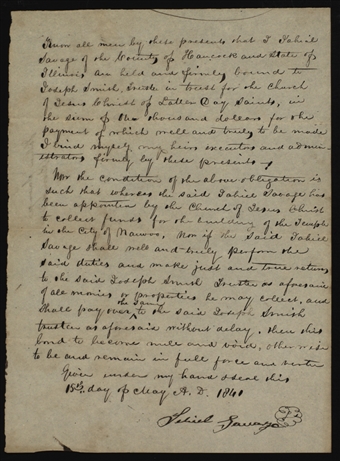 Know all men by these presents that I Jahiel
Savage of the County of Hancock and State of
Illinois, are held and firmly bound to
Joseph Smith, Trustee in trust for the Church
of Jesus Christ of Latter Day Saints, in
the sum of two thousand dollars for the
payment of which well and truly to be made
I bind myself, my heirs executors and admin-
istrators firmly by these presents,
Now the condition of the above obligation is
such that whereas the said Jahiel Savage has
been appointed by the Church of Jesus Christ
to collect funds for the building of the Temple
in the City of Nauvoo. Now if the said Jahiel
Savage shall well and truly perform the
said duties and make just and true returns
to the said Joseph Smith Trustee as aforesaid
of all monies or properties he may collect, and
shall pay over the same to the said Joseph Smith
trustee as aforesaid without delay, then this
bond to become null and void, otherwise
to be and remain in full force and virtue
Given under my hand & seal this
18th day of May A. D. 1841
Jehiel Savage